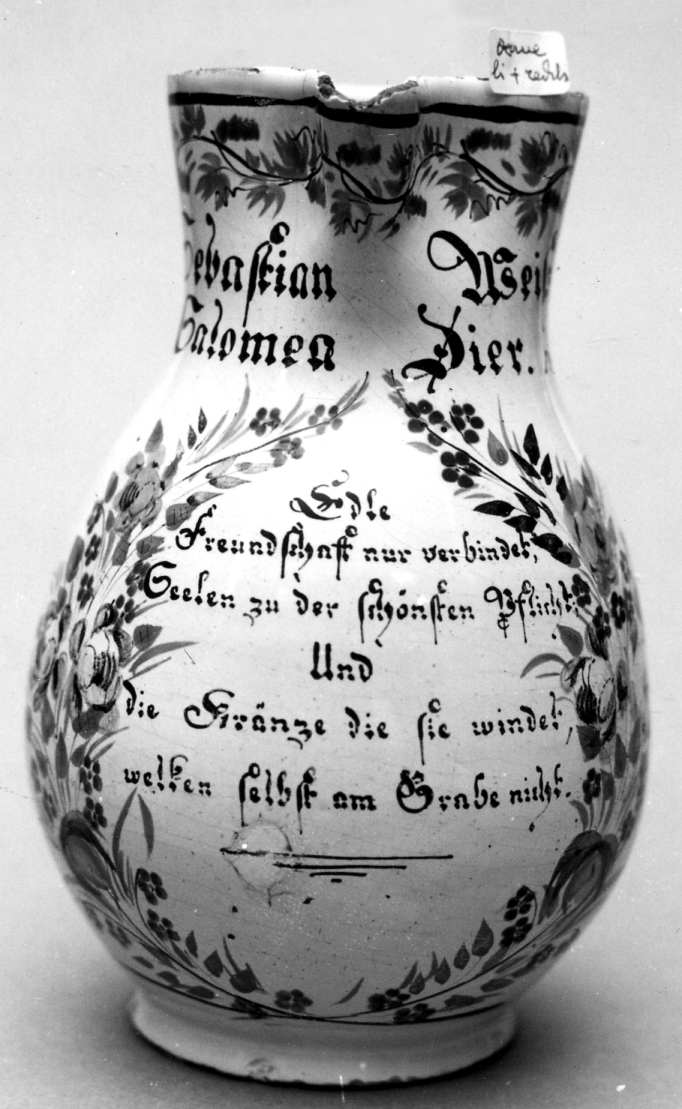 li + rechts
Sebastian
Salomea Dier.
Edle
Freundschaft nur verbindet,
Seelen zu der schönsten Pflicht,
Und
die Kränze die sie windet,
welken selbst am Grabe nicht.